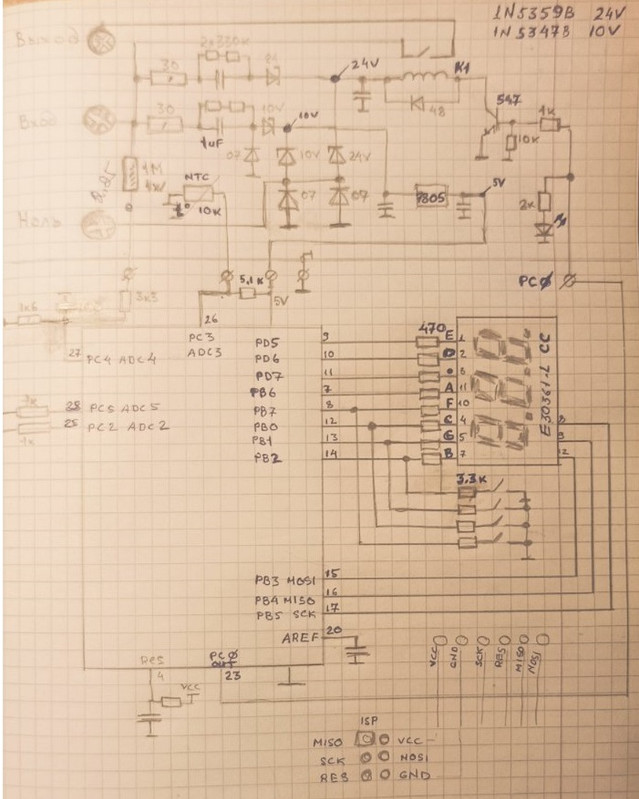 1N5359B 24V
1N5347B 10V
Выход
2x330K
30
24V
K1
547
1K
Вход
30
10V
10V
48
10K
1uF
07
10V
24V
1M
NTC
10K
07
07
7805
5V
2K
Ноль
5.1K
5V
PCØ
1K6
3K3
26
PC3
ADC3
27
PC4 ADC4
28 PC5 ADC5
25 PC2 ADC2
1K
470
PD5 9 E 1
PD6 10 D 2
PD7 11
PB6 7 A 11
PB7 8 F 10
PB0 12 C 4
PB1 13 G 5
PB2 14 B 7
E30361-L CC
8
9
12
3.3K
PB3 MOSI 15
PB4 MISO 16
PB5 SCK 17
AREF 20
RES
4
VCC
PCØ
OUT
23
VCC
GND
SCK
RES
MISO
MOSI
ISP
MISO VCC
SCK MOSI
RES GND